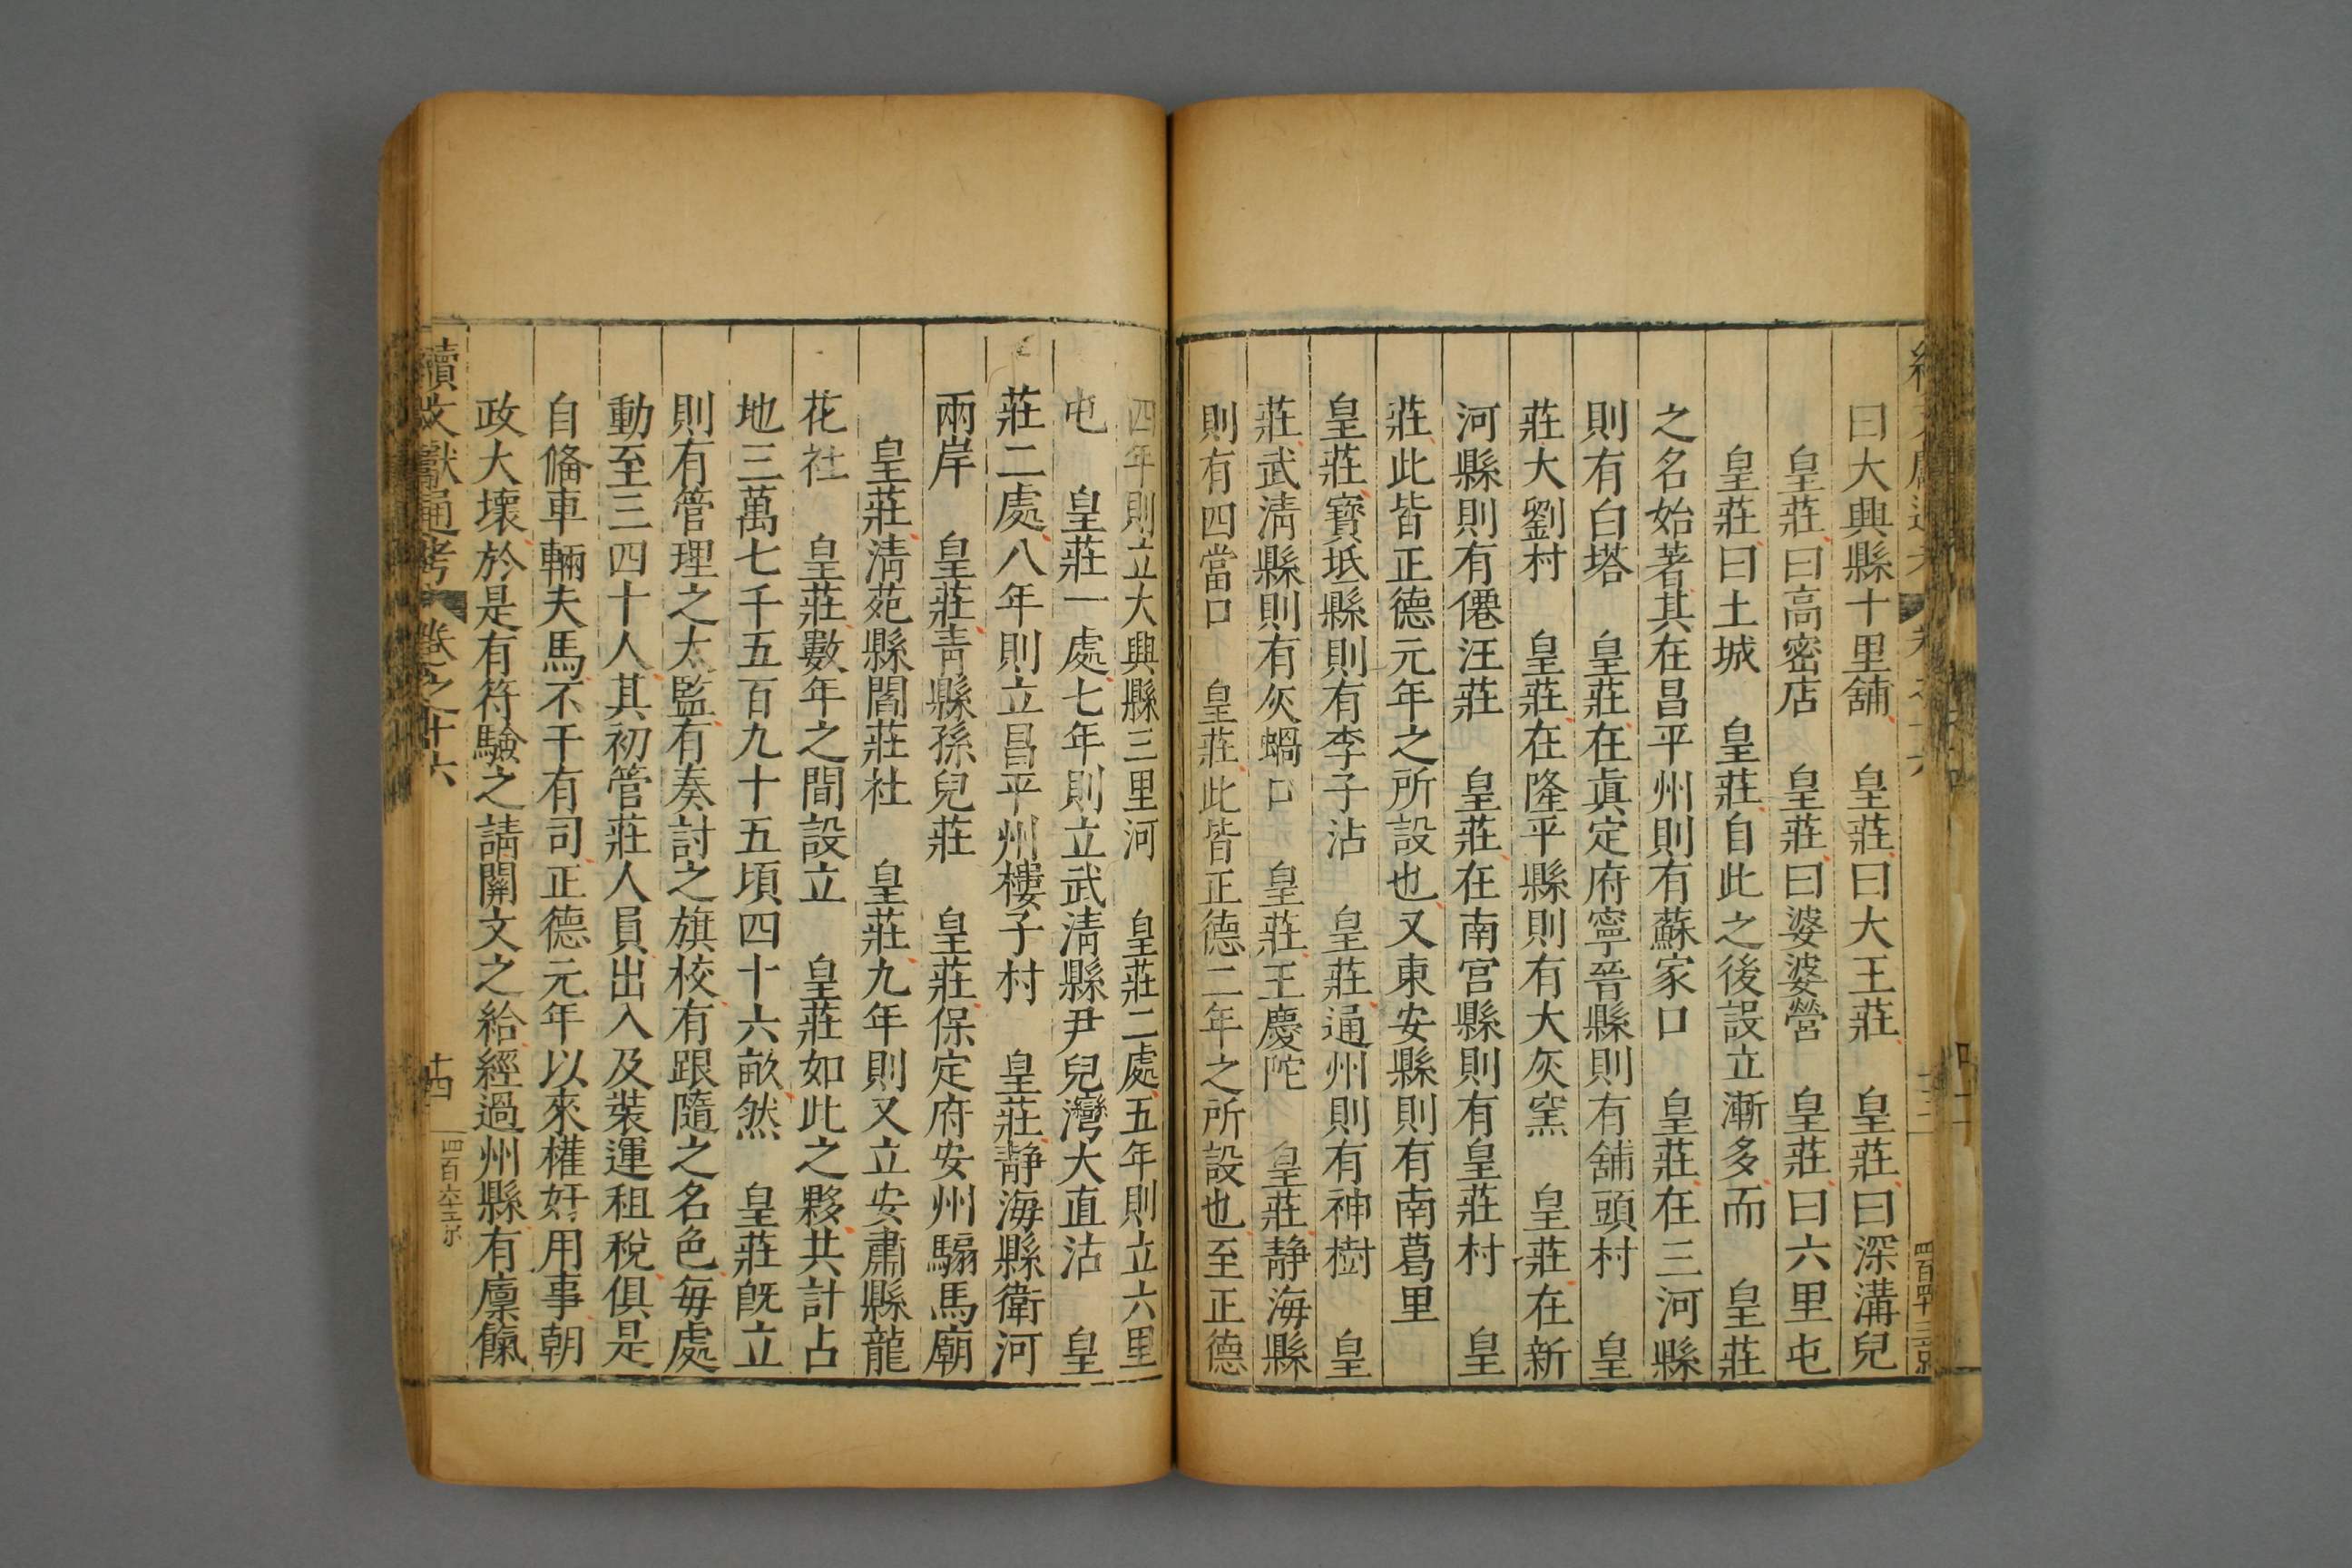 曰大興縣十里舖　皇莊曰大王莊　皇莊曰深溝兒
皇莊曰高密店　皇莊曰婆婆營　皇莊曰六里屯
皇莊曰土城　皇莊自此之後設立漸多而　皇莊
之名始著其在昌平州則有蘇家口　皇莊在三河縣
則有白塔　皇莊在真定府寧晉縣則有舖頭村　皇
莊大劉村　皇莊在隆平縣則有大灰窯　皇莊在新
河縣則有僊汪莊　皇莊在南宮縣則有皇莊村　皇
莊此皆正德元年之所設也又東安縣則有南葛里
皇莊寶坻縣則有李子沽　皇莊通州則有神樹　皇
莊武清縣則有灰蝸口　皇莊王慶陀　皇莊靜海縣
則有四當口　皇莊此皆正德二年之所設也至正德
四年則立大興縣三里河　皇莊二處五年則立六里
屯　皇莊一處七年則立武清縣尹兒灣大直沽　皇
莊二處八年則立昌平州樓子村　皇莊靜海縣衛河
兩岸　皇莊青縣孫兒莊　皇莊保定府安州騸馬廟
皇莊清苑縣閻莊社　皇莊九年則又立安肅縣龍
花社　皇莊數年之間設立　皇莊如此之夥共計占
地三萬七千五百九十五頃四十六畝然　皇莊既立
則有管理之太監有奏討之旗校有跟隨之名色每處
動至三四十人其初管莊人員出入及裝運租稅俱是
自偹車輛夫馬不干有司正德元年以來權奸用事朝
政大壞於是有符驗之請關文之給經過州縣有廩餼
續文獻通考　卷之十六
十四